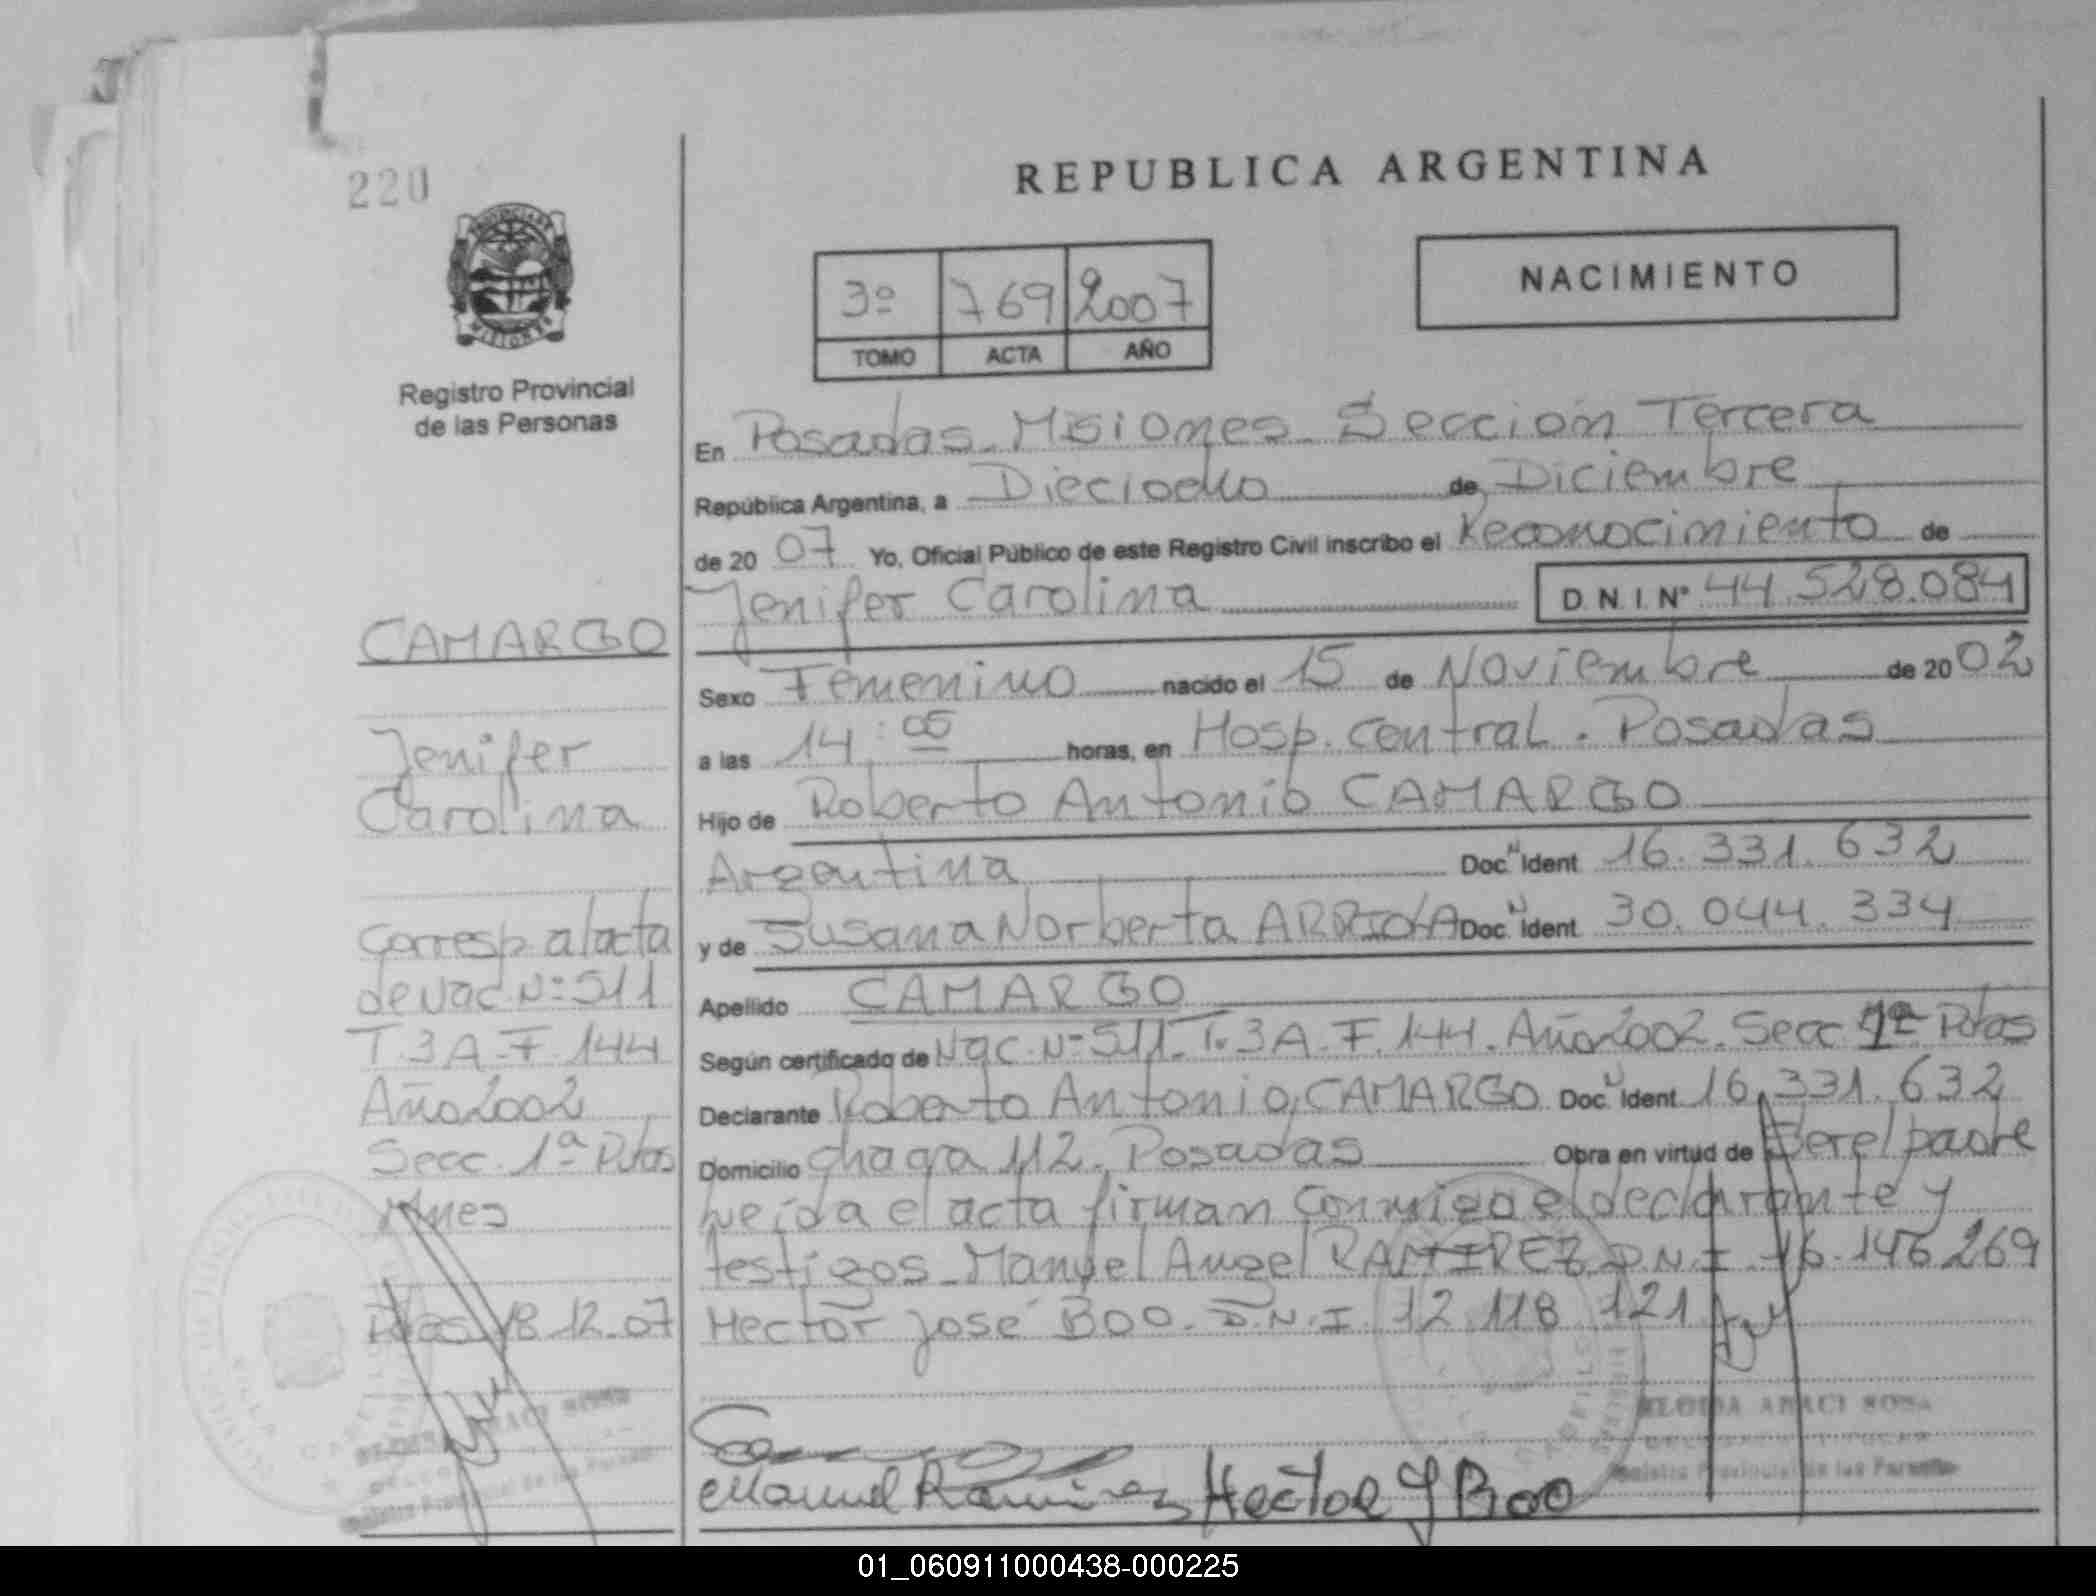 220
REPUBLICA ARGENTINA
NACIMIENTO
3º 769 2007
TOMO ACTA AÑO
Registro Provincial
de las Personas
En Posadas - Misiones - Sección Tercera
República Argentina, a Dieciocho de Diciembre
de 20 07 Yo, Oficial Público de este Registro Civil inscribo el Reconocimiento de
Jenifer Carolina D.N.I. Nº 44.528.084
Sexo Femenino nacido el 15 de Noviembre de 20 02
a las 14:05 horas, en Hosp. Central. Posadas
Hijo de Roberto Antonio CAMARGO
Argentina Doc. Ident 16.331.632
y de Susana Norberta ARRIOLA Doc. Ident 30.044.334
Apellido CAMARGO
Según certificado de Nac. Nº 511. T. 3A. F. 144. Año 2002. Secc. 1ª Pdas
Declarante Roberto Antonio CAMARGO Doc. Ident 16.331.632
Domicilio Chaga 112. Posadas Obra en virtud de Ser el padre
Leída el acta firman conmigo el declarante y
testigos - Manuel Angel RAMIREZ D.N.I. 16.146.269
Hector José BOO. D.N.I. 12.118.121
Manuel Ramirez Hector J Boo
ELOIDA ARACI SOSA
Registro Provincial de las Personas
CAMARGO
Jenifer
Carolina
Corresp al acta
de Nac. Nº 511
T. 3A - F. 144
Año 2002
Secc. 1ª Pdas
Mnes
Pdas 18.12.07
ARACI SOSA
Registro Provincial de las Personas
01_060911000438-000225